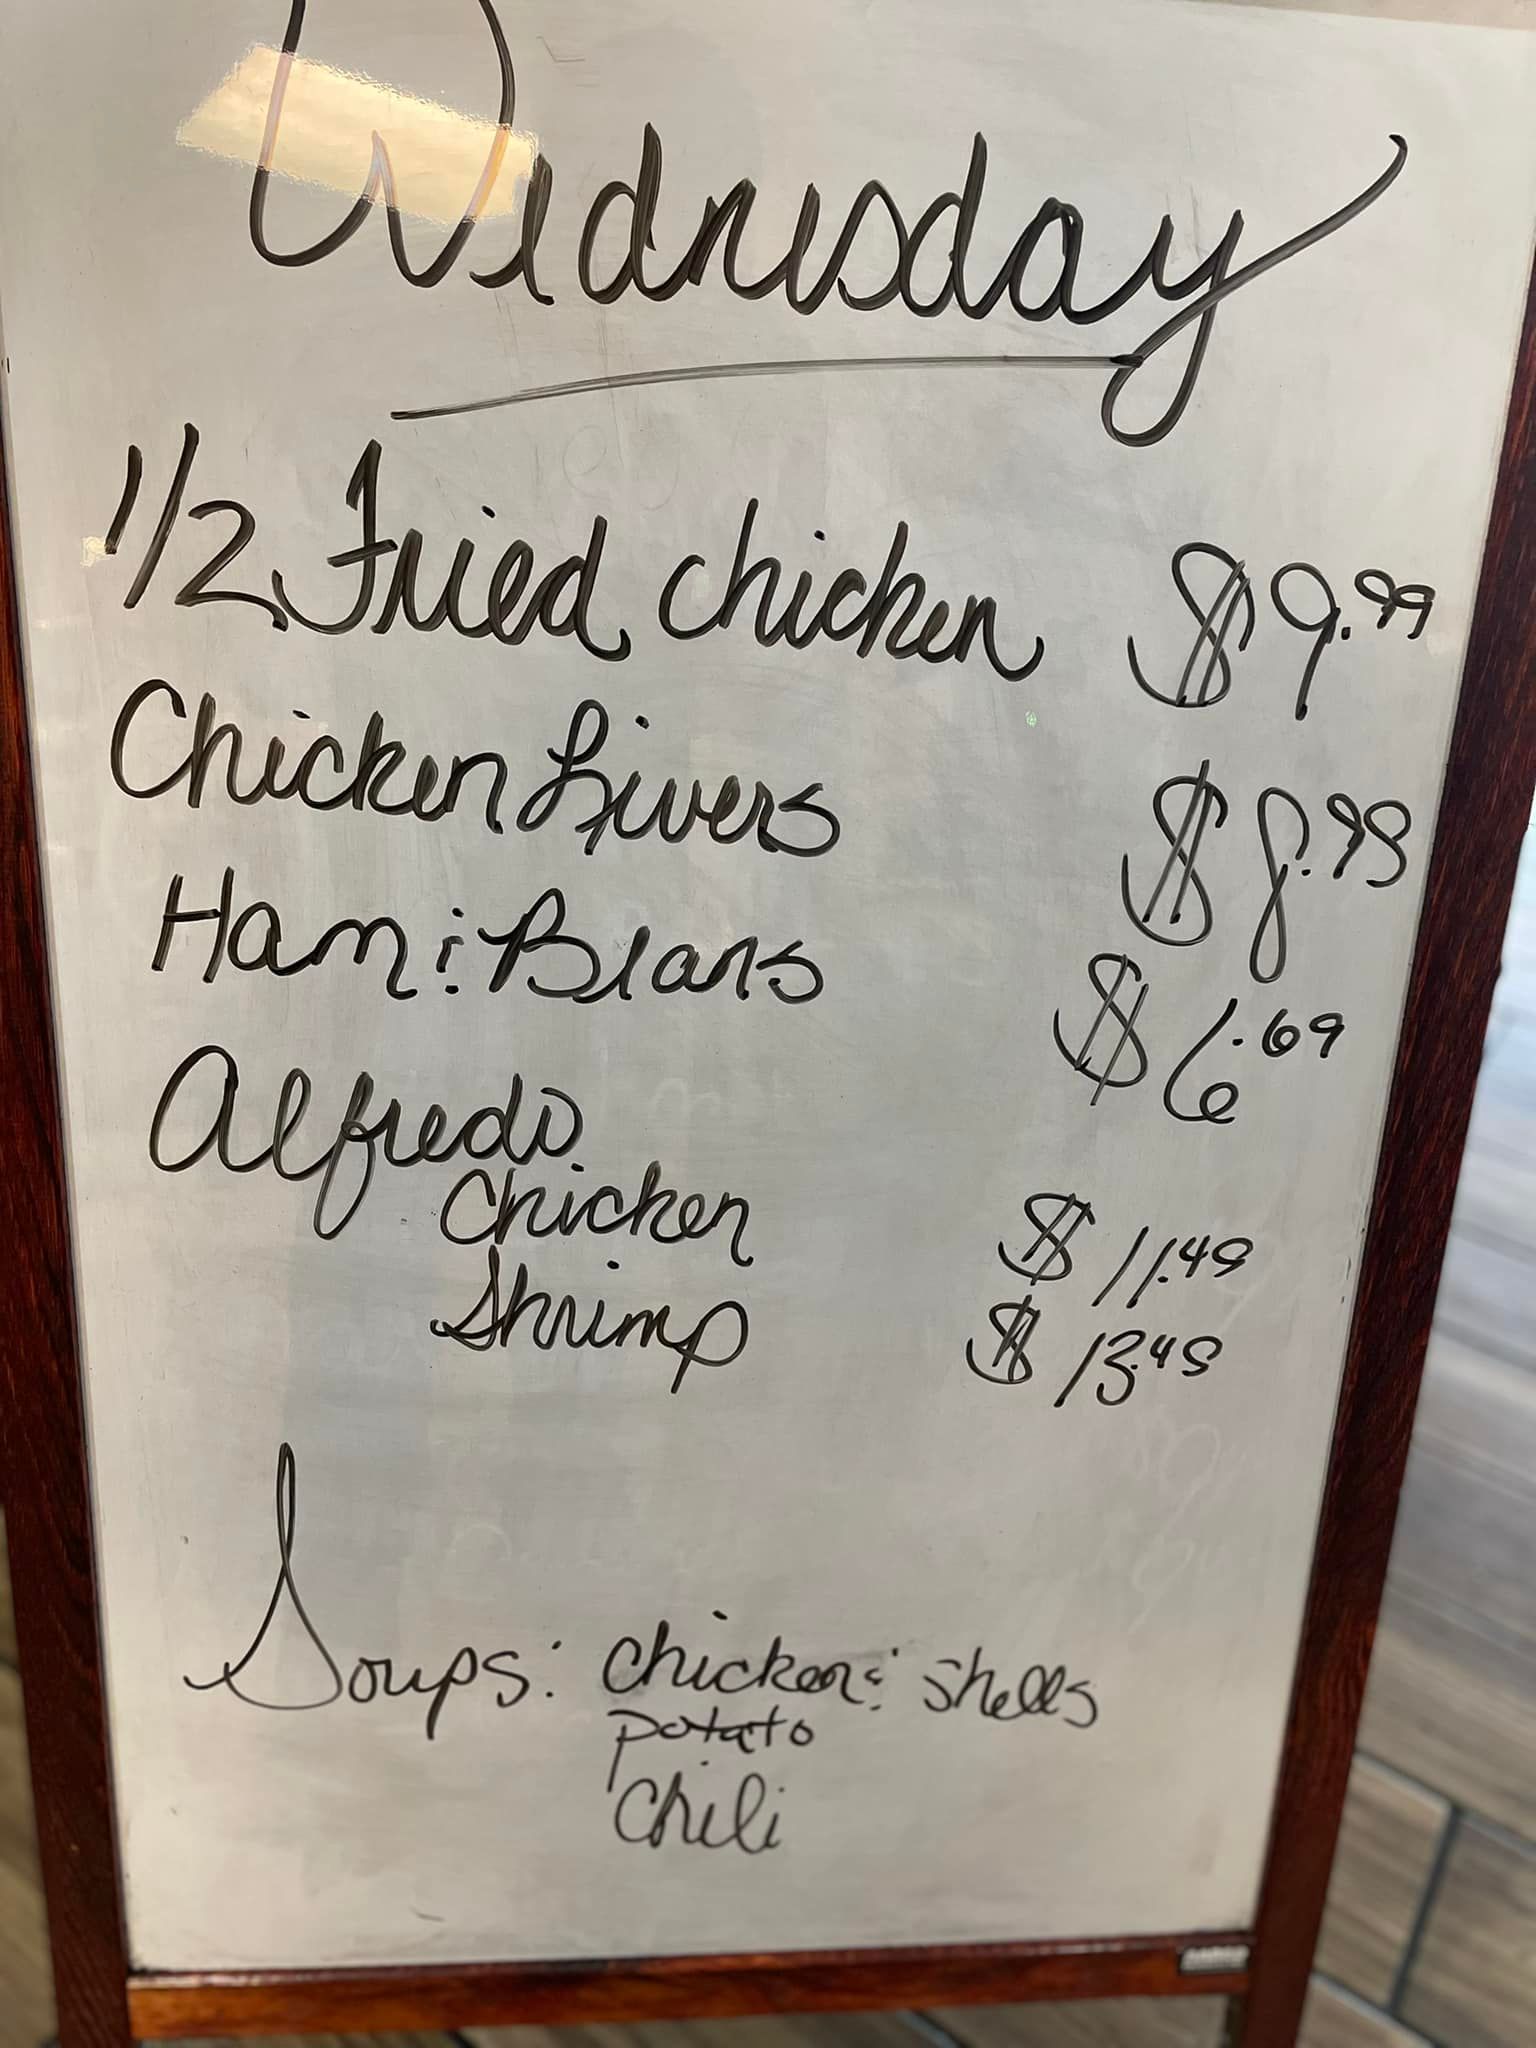 Wednesday
1/2 Fried chicken $9.99
Chicken Livers $8.99
Ham & Beans $6.69
Alfredo
Chicken $11.49
Shrimp $13.49
Soups: chicken & shells
potato
Chili